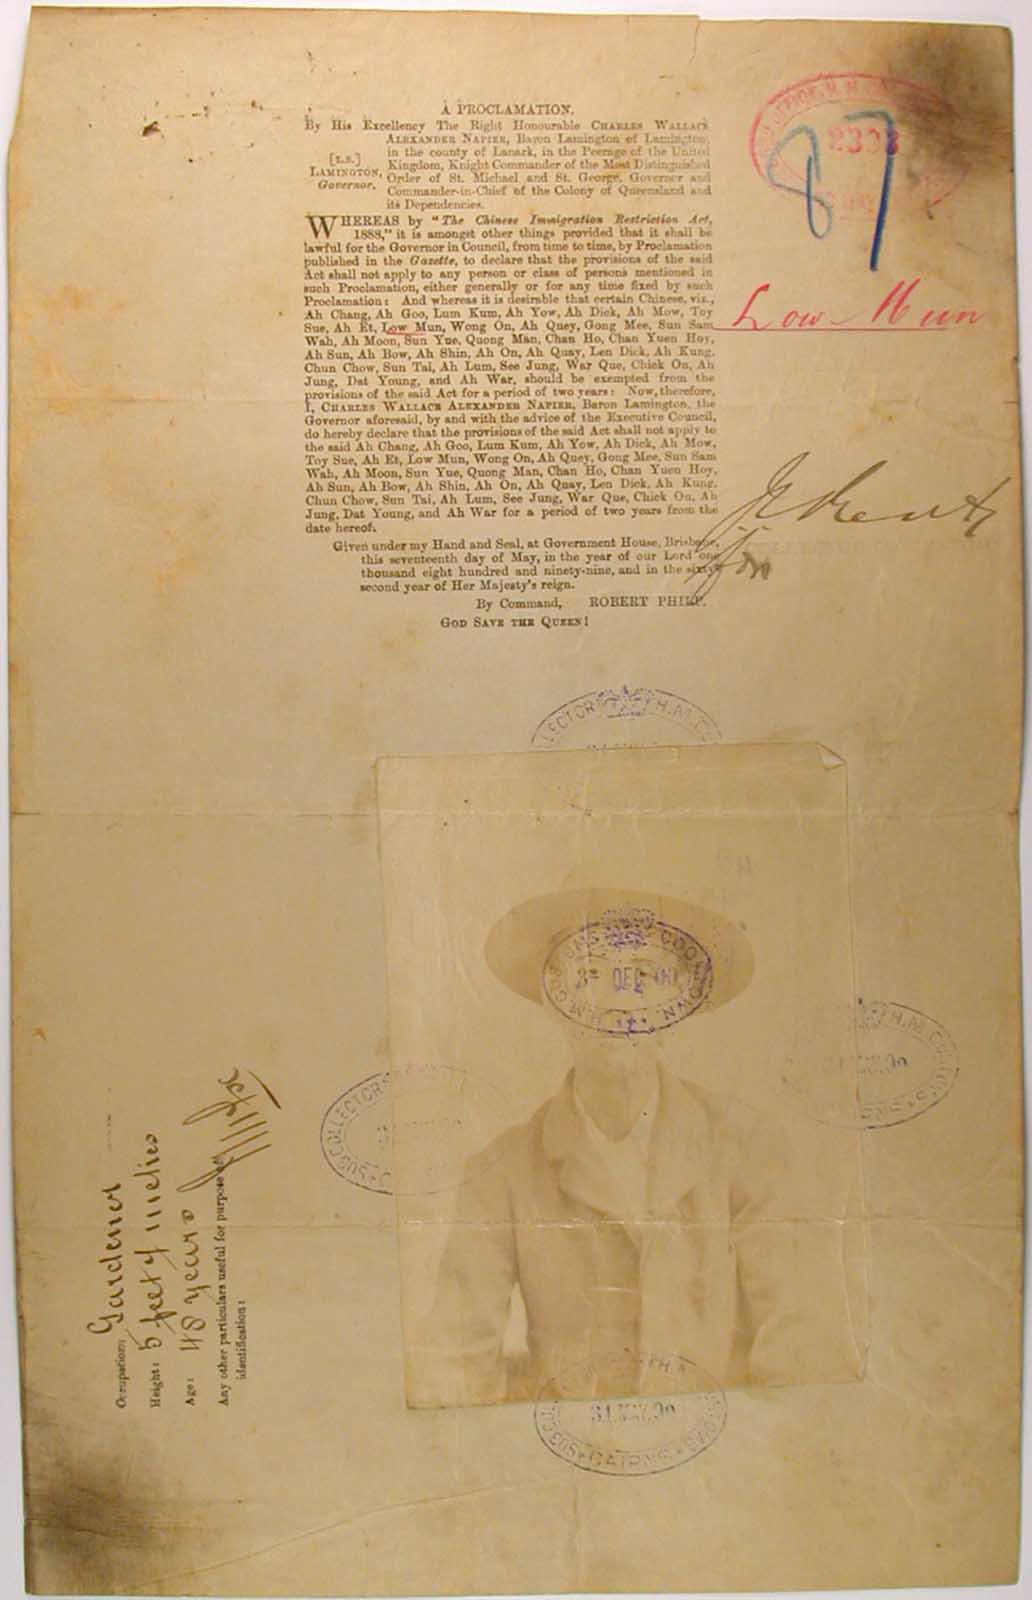 A PROCLAMATION.
By His Excellency The Right Honourable CHARLES WALLACE
ALEXANDER NAPIER, Baron Lamington of Lamington,
in the county of Lanark, in the Peerage of the United
[L.S.] Kingdom, Knight Commander of the Most Distinguished
LAMINGTON, Order of St. Michael and St. George, Governor and
Governor. Commander-in-Chief of the Colony of Queensland and
its Dependencies.
WHEREAS by "The Chinese Immigration Restriction Act,
1888," it is amongst other things provided that it shall be
lawful for the Governor in Council, from time to time, by Proclamation
published in the Gazette, to declare that the provisions of the said
Act shall not apply to any person or class of persons mentioned in
such Proclamation, either generally or for any time fixed by such
Proclamation: And whereas it is desirable that certain Chinese, viz.,
Ah Chang, Ah Goo, Lum Kum, Ah Yow, Ah Dick, Ah Mow, Toy
Sue, Ah Et, Low Mun, Wong On, Ah Quey, Gong Mee, Sun Sam
Wah, Ah Moon, Sun Yue, Quong Man, Chan Ho, Chan Yuen Hoy,
Ah Sun, Ah Bow, Ah Shin, Ah On, Ah Quay, Len Dick, Ah Kung,
Chun Chow, Sun Tai, Ah Lum, See Jung, War Que, Chick On, Ah
Jung, Dat Young, and Ah War, should be exempted from the
provisions of the said Act for a period of two years: Now, therefore,
I, CHARLES WALLACE ALEXANDER NAPIER, Baron Lamington, the
Governor aforesaid, by and with the advice of the Executive Council,
do hereby declare that the provisions of the said Act shall not apply to
the said Ah Chang, Ah Goo, Lum Kum, Ah Yow, Ah Dick, Ah Mow,
Toy Sue, Ah Et, Low Mun, Wong On, Ah Quey, Gong Mee, Sun Sam
Wah, Ah Moon, Sun Yue, Quong Man, Chan Ho, Chan Yuen Hoy,
Ah Sun, Ah Bow, Ah Shin, Ah On, Ah Quay, Len Dick, Ah Kung,
Chun Chow, Sun Tai, Ah Lum, See Jung, War Que, Chick On, Ah
Jung, Dat Young, and Ah War for a period of two years from the
date hereof.
Given under my Hand and Seal, at Government House, Brisbane,
this seventeenth day of May, in the year of our Lord one
thousand eight hundred and ninety-nine, and in the sixty-
second year of Her Majesty's reign.
By Command, ROBERT PHILP.
GOD SAVE THE QUEEN!
87
Low Mun
H.M. CUSTOMS COOKTOWN.
3 DEC 00
CAIRNS
Occupation: Gardener
Height: 5 feet 4 inches
Age: 48 years
Any other particulars useful for purpose of
identification: